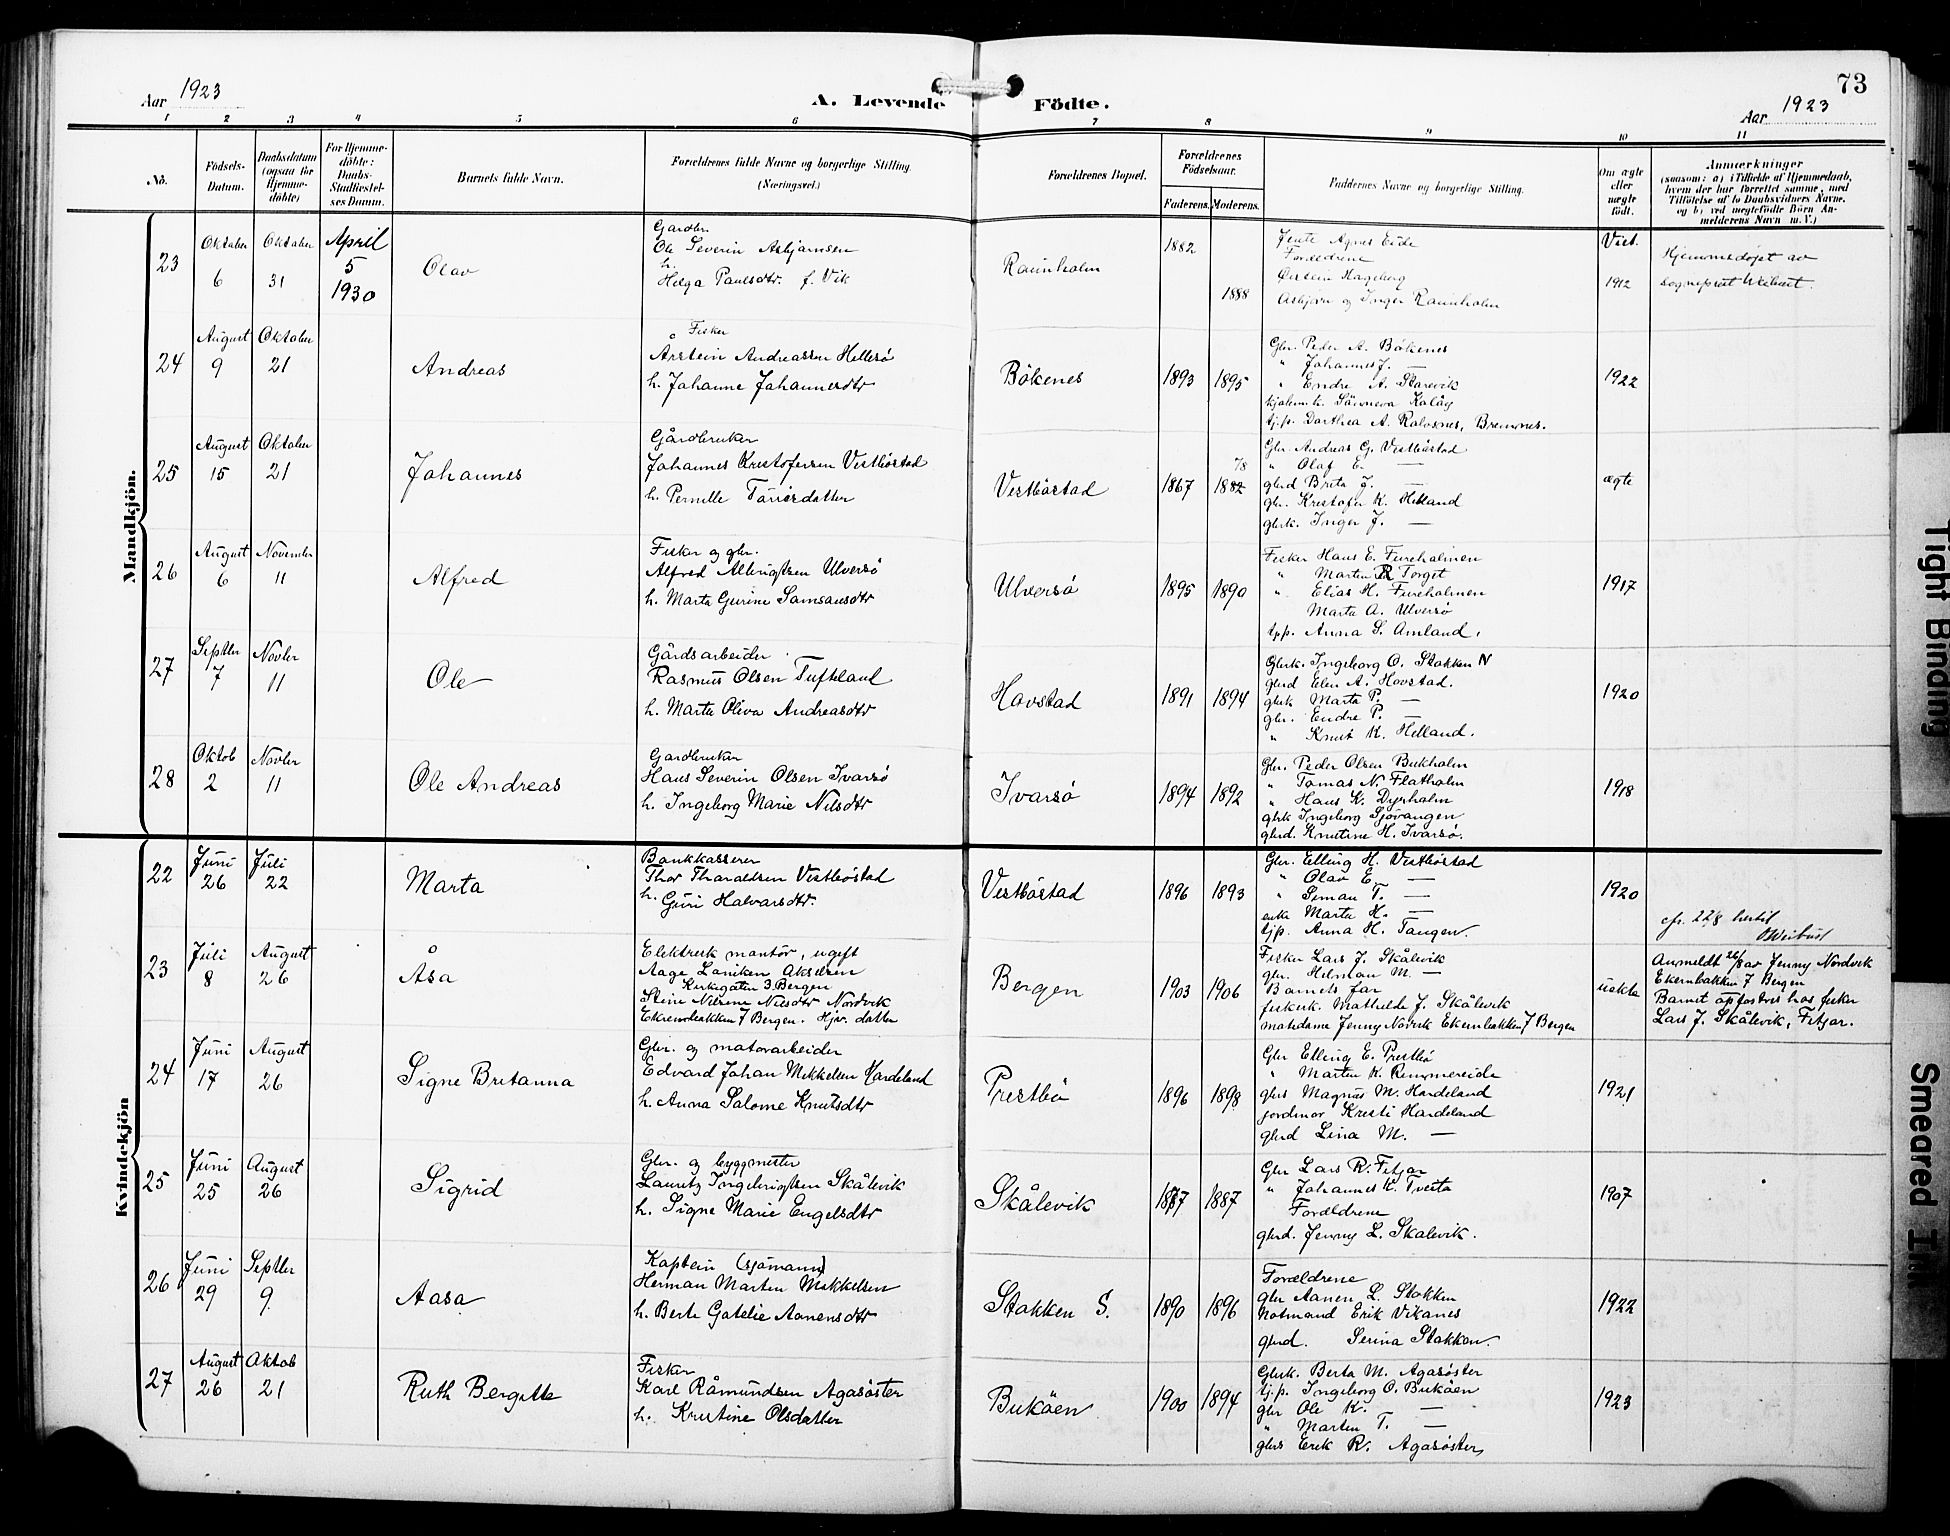 Aar 1923
A. Levende Födte.
73
Aar 1923
1 2 3 4 5 6 7 8 9 10 11
No.
Födsels-Datum.
Daabsdatum (ogsaa for Hjemmedöbte)
For Hjemmedöbte: Daabs-Stadfæstelses Datum.
Barnets fulde Navn.
Forældrenes fulde Navne og borgerlige Stilling. (Næringsvei.)
Forældrenes Bopæl.
Forældrenes Födselsaar.
Faderens. Moderens.
Faddernes Navne og borgerlige Stilling.
Om ægte eller uægte födt.
Anmærkninger
(saasom: a) i Tilfælde af Hjemmedaab, hvem der har forrettet samme, med Tilföielse af to Daabsvidners Navne, og b) ved uægtefödte Börn Anmelderens Navn m. V.)
Mandkjön.
23
Oktober 6
Oktober 31
April 5 1930
Olav
Gardbr.
Ole Severin Asbjørnsen
h.
Helga Paulsdtr. f. Vik
Ravnholm
1882
1888
Jente Agnes Eide
Forældrene
Øistein Hageberg
Asbjørn og Inger Ravnholm
Viet. 1912
Hjemmedøpt av
sogneprest Weibust.
24
August 9
Oktober 21
Andreas
Fisker
Årstein Andreassen Hellesø
h. Johanne Johannesdtr
Bökenes
1893
1895
Gbr. Peder A. Bökenes
" Johannes J. —
" Endre A. Skarevik
Sövneva Kalåg
tj.p. Dorthea A. Kalvsnes, Bremnes.
1922
25
August 15
Oktober 21
Johannes
Gårdbruker
Johannes Kristofersen Vestbøstad
h. Pernille Tørresdatter
Vestbøstad
1867
78
1882
Gbr. Andreas G. Vestbøstad
" Olaf E. —
gbrd Brita J. —
gbr. Kristofer K. Helland
gbrk. Inger J. —
ægte
26
August 6
November 11
Alfred
Fisker og gbr.
Alfred Albrigtsen Ulversø
h. Marta Gurine Samsonsdtr
Ulversø
1895
1890
Fisker Hans E. Fureholmen
" Marten R Torget
" Elias H. Fureholmen
Marta A. Ulversø
tjp. Anna S. Amland.
1917
27
Septbr 7
Novbr 11
Ole
Gårdsarbeider
Rasmus Olsen Tufteland
h. Marta Oliva Andreasdtr
Hovstad
1891
1894
Gbrk. Ingeborg O. Stokken N
gbrd Elen A. Hovstad.
gbrk Marta P. —
gbr. Endre P. —
" Knut K. Helland.
1920
28
Oktob 2
Novbr 11
Ole Andreas
Gardbruker
Hans Severin Olsen Ivarsø
h. Ingeborg Marie Nilsdtr
Ivarsø
1894
1892
Gbr. Peder Olsen Bukholm
" Tomas N. Flatholm
" Hans K. Dyrholm
gbrk Ingeborg Sjøvangen
gbrd. Knutine H. Ivarsø.
1918
Kvindekjön
22
Juni 26
Juli 22
Marta
Bankkasserer
Thor Tharaldsen Vestbøstad
h. Guri Halvarsdtr.
Vestbøstad
1896
1893
Gbr. Elling H. Vestbøstad
" Olav E. —
" Simon T. —
enke Marta H. —
tjp. Anna H. Tangen.
1920
cfr. 22/8 hertil
Weibust
23
Juli 8
August 26
Åsa
Elektrisk montør, ugift
Aage Laniken Akselsen
Kirkegaten 3. Bergen
Stine Nilsine Nilsdtr Nordvik
Ekrenbakken 7 Bergen. Hjv. datter
Bergen
1903
1906
Fisker Lars J. Skålevik
gbr. Hilman M. —
Barnets far
fiskerk. Mathilde J. Skålevik
Jenny Nordvik Ekernbakken 7 Bergen
uekte
Anmeldt 26/8 av Jenny Nordvik
Ekernbakken 7 Bergen
Barnet opfostres hos fisker
Lars J. Skålevik, Fitjar.
24
Juni 17
August 26
Signe Britanna
Gbr. og motorarbeider
Edvard Johan Mikkelsen Hardeland
h. Anna Salome Knutsdtr
Prestbø
1896
1898
Gbr Elling E. Prestbø
" Marten K. Rimmereide
gbrs Magnus M. Hardeland
jordmor Kristi Hardeland
gbrd Lina M. —
1921
25
Juni 25
August 26
Sigrid
Gbr. og byggmester
Lauritz Ingebrigtsen Skålevik
h. Signe Marie Engelsdtr
Skålevik
1887
1887
Gbr Lars R. Fitjar
" Johannes K. Tveita
Forældrene
gbrd. Jenny L. Skålevik.
1907
26
Juni 29
Septbr 9
Aasa
Kaptein (sjømann)
Herman Marten Mikkelsen
h. Berte Gatelie Aanensdtr
Stokken S.
1890
1896
Forældrene
gbr Aanen L. Stokken
Notmand Erik Vikanes
gbrd. Serina Stokken.
1922
27
August 26
Oktob 21
Ruth Bergitte
Fisker
Karl Råmundsen Agasøster
h. Kristine Olsdatter
Bukøen
1900
1894
Gbrk. Berta M. Agasøster
tj.p. Ingeborg O. Bukøen
gbr Ole K. —
" Marten T. —
gbrs Erik R. Agasøster
1923
Tight Binding
Smeared Ink